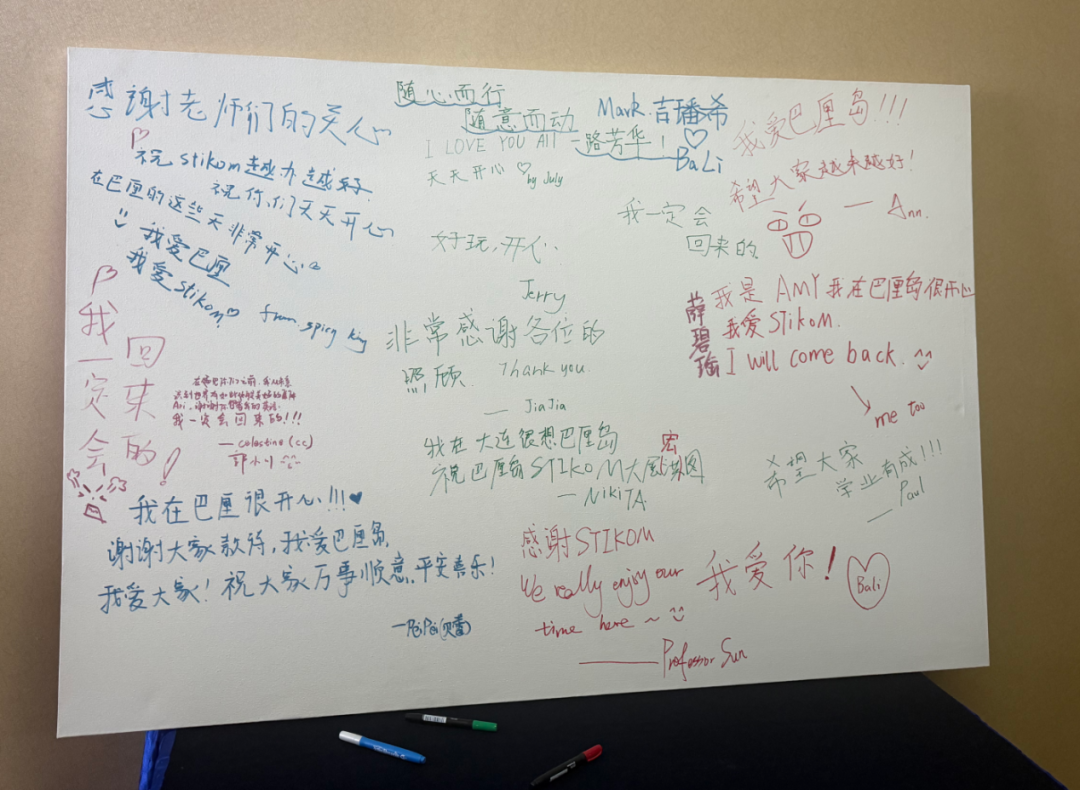 感谢老师们的关心
祝 stikom 越办越好
祝你们天天开心
在巴厘的这些天非常开心
我爱巴厘
我爱 stikom
from spring
我一定会
回来的!
我一定会回来的!!!
— celestine (cc)
我在巴厘很开心!!!♥
谢谢大家款待,我爱巴厘岛,
我爱大家!祝大家万事顺意,平安喜乐!
—PeiPei
随心而行
随意而动
一路芳华!
I LOVE YOU All
天天开心 ♡
by July
好玩,开心
Jerry
非常感谢各位的
照顾. Thank you.
— JiaJia
我在大连很想巴厘岛
祝巴厘岛STIKOM大展宏图
—NikiTA.
感谢STIKOM
We really enjoy our
time here ~
——Professor Sun
Mark.吉璠希
♡
BaLi
我爱巴厘岛!!!
希望大家越来越好!
— Ann.
我一定会
回来的
薛碧瑶
我是 AMY 我在巴厘岛很开心
我爱STikoM.
I will come back.
me too
希望大家
学业有成!!!
— Paul
我爱你!
Bali